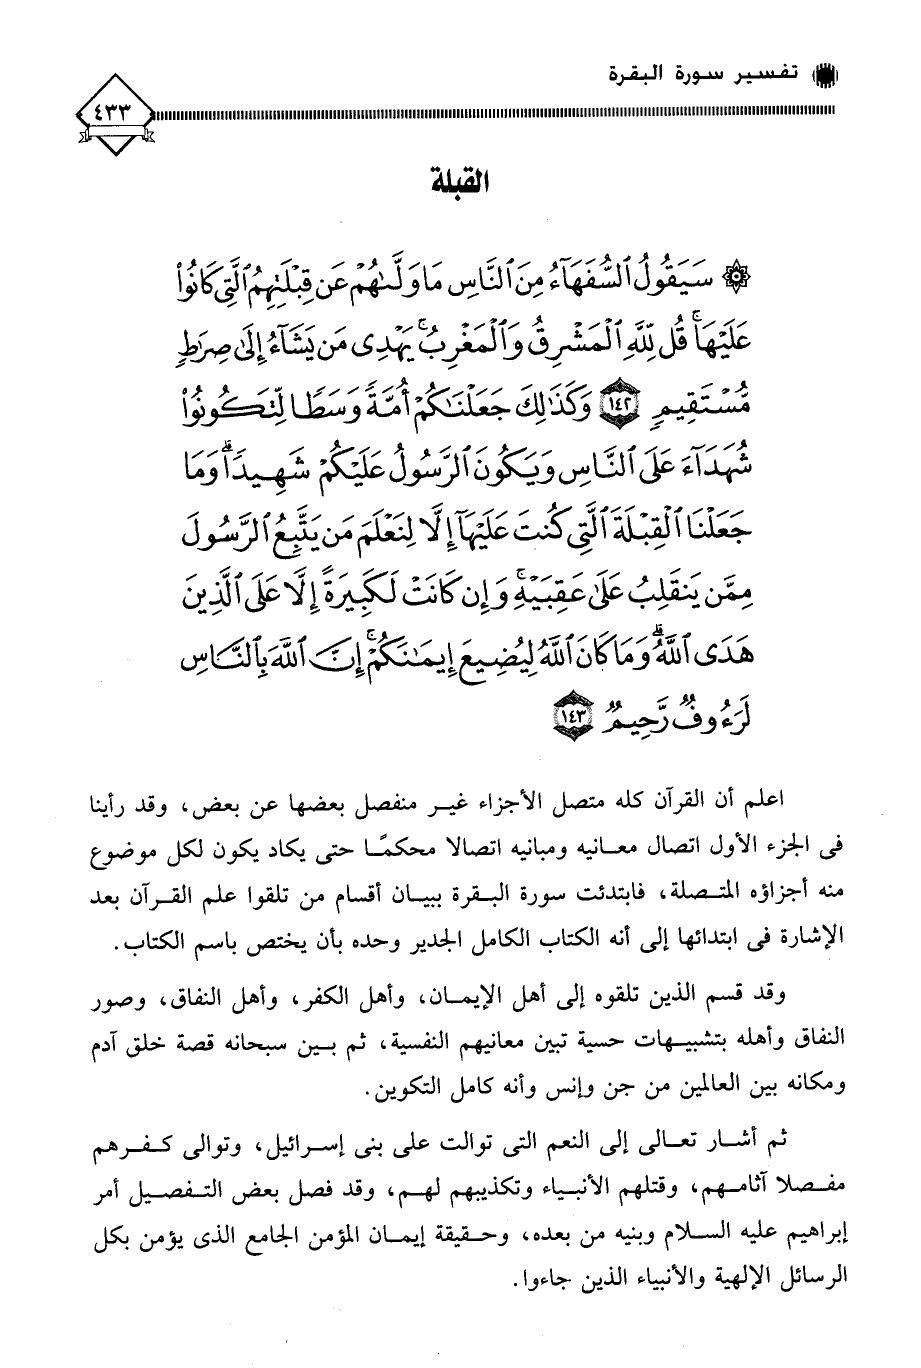 تفسير سورة البقرة
٤٣٣
القبلة
۞ سَيَقُولُ ٱلسُّفَهَآءُ مِنَ ٱلنَّاسِ مَا وَلَّىٰهُمْ عَن قِبْلَتِهِمُ ٱلَّتِى كَانُوا۟
عَلَيْهَا ۚ قُل لِّلَّهِ ٱلْمَشْرِقُ وَٱلْمَغْرِبُ ۚ يَهْدِى مَن يَشَآءُ إِلَىٰ صِرَٰطٍ
مُّسْتَقِيمٍ ١٤٢ وَكَذَٰلِكَ جَعَلْنَٰكُمْ أُمَّةً وَسَطًا لِّتَكُونُوا۟
شُهَدَآءَ عَلَى ٱلنَّاسِ وَيَكُونَ ٱلرَّسُولُ عَلَيْكُمْ شَهِيدًا ۗ وَمَا
جَعَلْنَا ٱلْقِبْلَةَ ٱلَّتِى كُنتَ عَلَيْهَآ إِلَّا لِنَعْلَمَ مَن يَتَّبِعُ ٱلرَّسُولَ
مِمَّن يَنقَلِبُ عَلَىٰ عَقِبَيْهِ ۚ وَإِن كَانَتْ لَكَبِيرَةً إِلَّا عَلَى ٱلَّذِينَ
هَدَى ٱللَّهُ ۗ وَمَا كَانَ ٱللَّهُ لِيُضِيعَ إِيمَٰنَكُمْ ۚ إِنَّ ٱللَّهَ بِٱلنَّاسِ
لَرَءُوفٌ رَّحِيمٌ ١٤٣
اعلم أن القرآن كله متصل الأجزاء غير منفصل بعضها عن بعض، وقد رأينا
فى الجزء الأول اتصال معانيه ومبانيه اتصالا محكمًا حتى يكاد يكون لكل موضوع
منه أجزاؤه المتصلة، فابتدئت سورة البقرة ببيان أقسام من تلقوا علم القرآن بعد
الإشارة فى ابتدائها إلى أنه الكتاب الكامل الجدير وحده بأن يختص باسم الكتاب.
وقد قسم الذين تلقوه إلى أهل الإيمان، وأهل الكفر، وأهل النفاق، وصور
النفاق وأهله بتشبيهات حسية تبين معانيهم النفسية، ثم بين سبحانه قصة خلق آدم
ومكانه بين العالمين من جن وإنس وأنه كامل التكوين.
ثم أشار تعالى إلى النعم التى توالت على بنى إسرائيل، وتوالى كفرهم
مفصلا آثامهم، وقتلهم الأنبياء وتكذيبهم لهم، وقد فصل بعض التفصيل أمر
إبراهيم عليه السلام وبنيه من بعده، وحقيقة إيمان المؤمن الجامع الذى يؤمن بكل
الرسائل الإلهية والأنبياء الذين جاءوا.